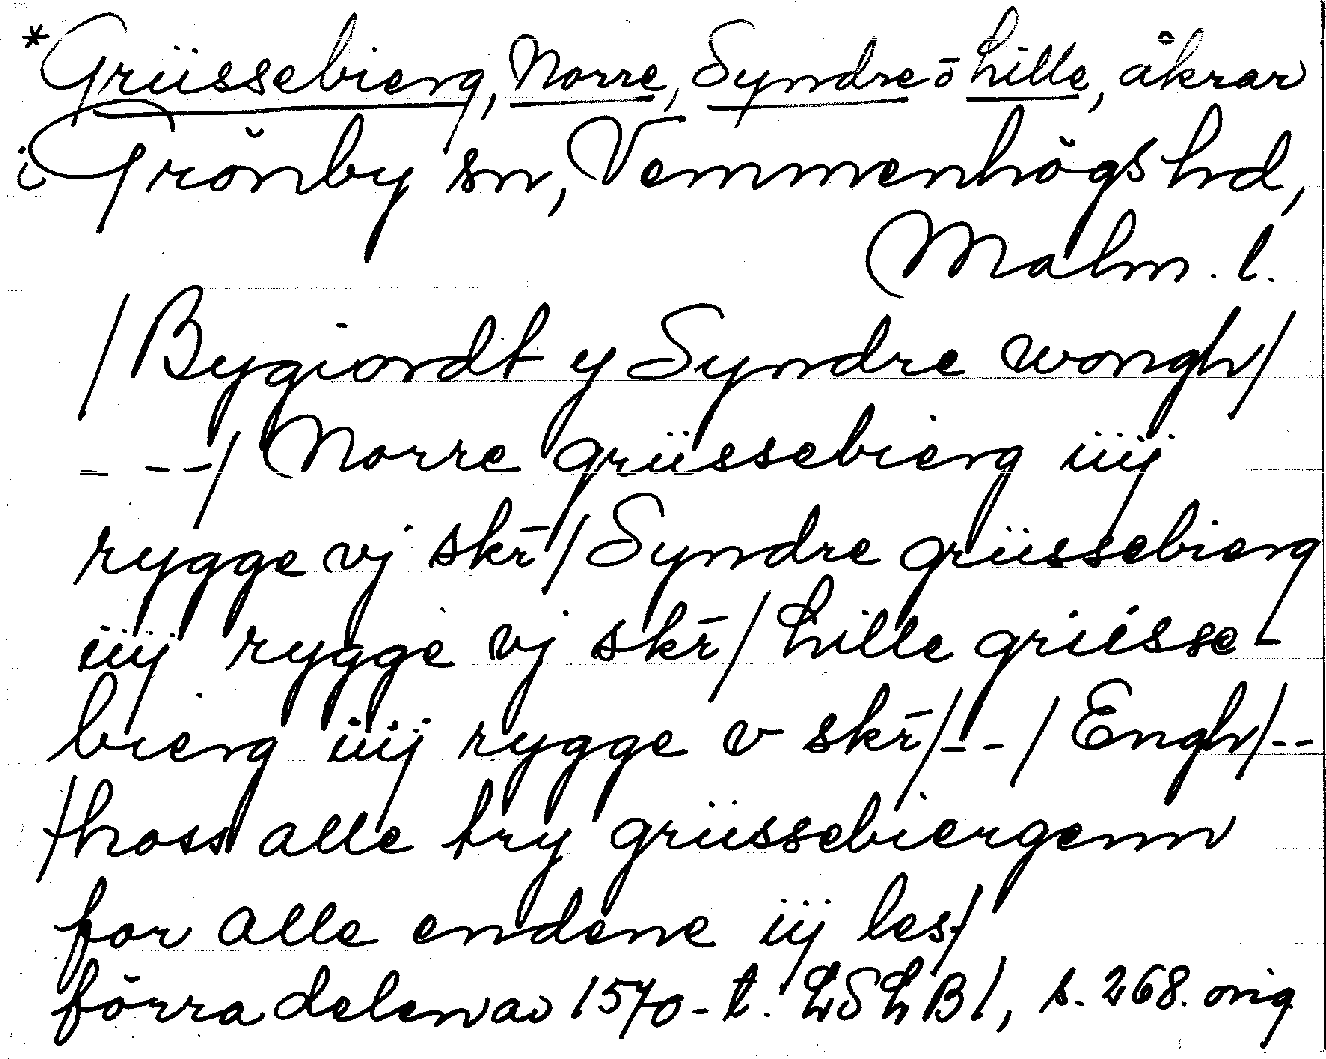 *Grüssebierg, Norre, Syndre o̅ Lille, åkrar
i Grönby sn, Vemmenhögs hd,
Malm. l.
/Bygiordt y Syndre wongh/
- --/ Norre grüssebierg iiij
rygge vj skr̅/ Syndre grüssebierg
iiij rygge vj skr̅/ Lille grüsse-
bierg iiij rygge v skr̅/-- / Engh/--
/hoss alle try grüssebiergenn
for alle endene iij les/
förra delen av 1570-t. LSLB 1, s. 268. orig